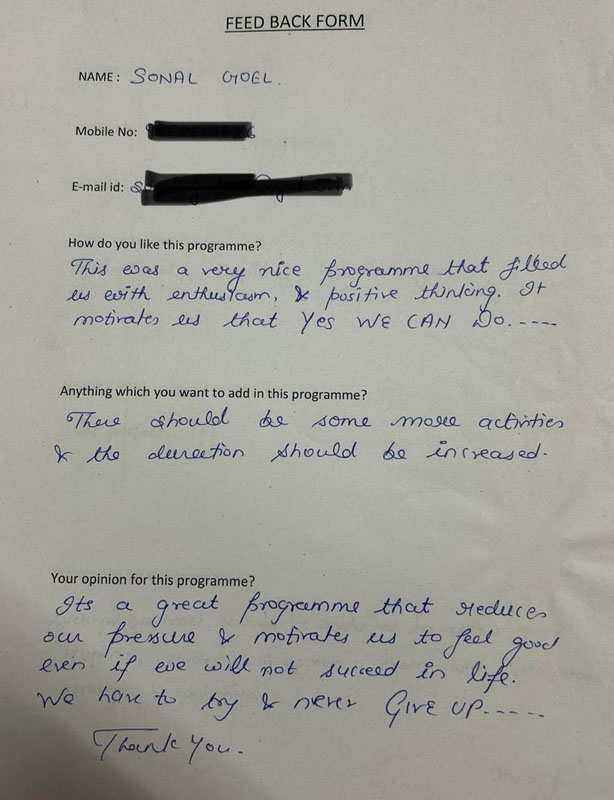 FEED BACK FORM
NAME: SONAL GOEL.
Mobile No:
E-mail id:
How do you like this programme?
This was a very nice programme that filled
us with enthusiasm, & positive thinking. It
motivates us that Yes WE CAN Do.----
Anything which you want to add in this programme?
There should be some more activities
& the duration should be increased.
Your opinion for this programme?
Its a great programme that reduces
our pressure & motivates us to feel good
even if we will not succeed in life.
We have to try & never GIVE UP.----
Thank You.